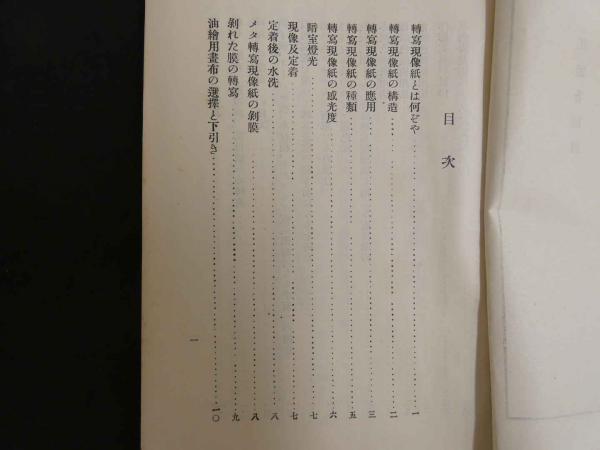 目次
轉寫現像紙とは何ぞや……一
轉寫現像紙の構造……二
轉寫現像紙の應用……三
轉寫現像紙の種類……五
轉寫現像紙の感光度……六
暗室燈光……七
現像及定着……七
定着後の水洗……八
メタ轉寫現像紙の剝膜……八
剝れた膜の轉寫……九
油繪用畫布の選擇と下引き……一〇
一